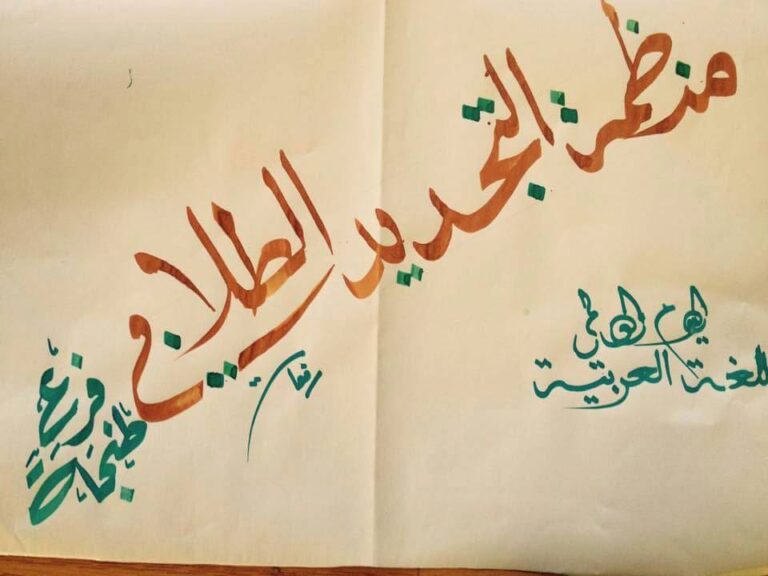 منظمة التجديد الطلابي
اليوم العالمي
للغة العربية
فرع
طنجة